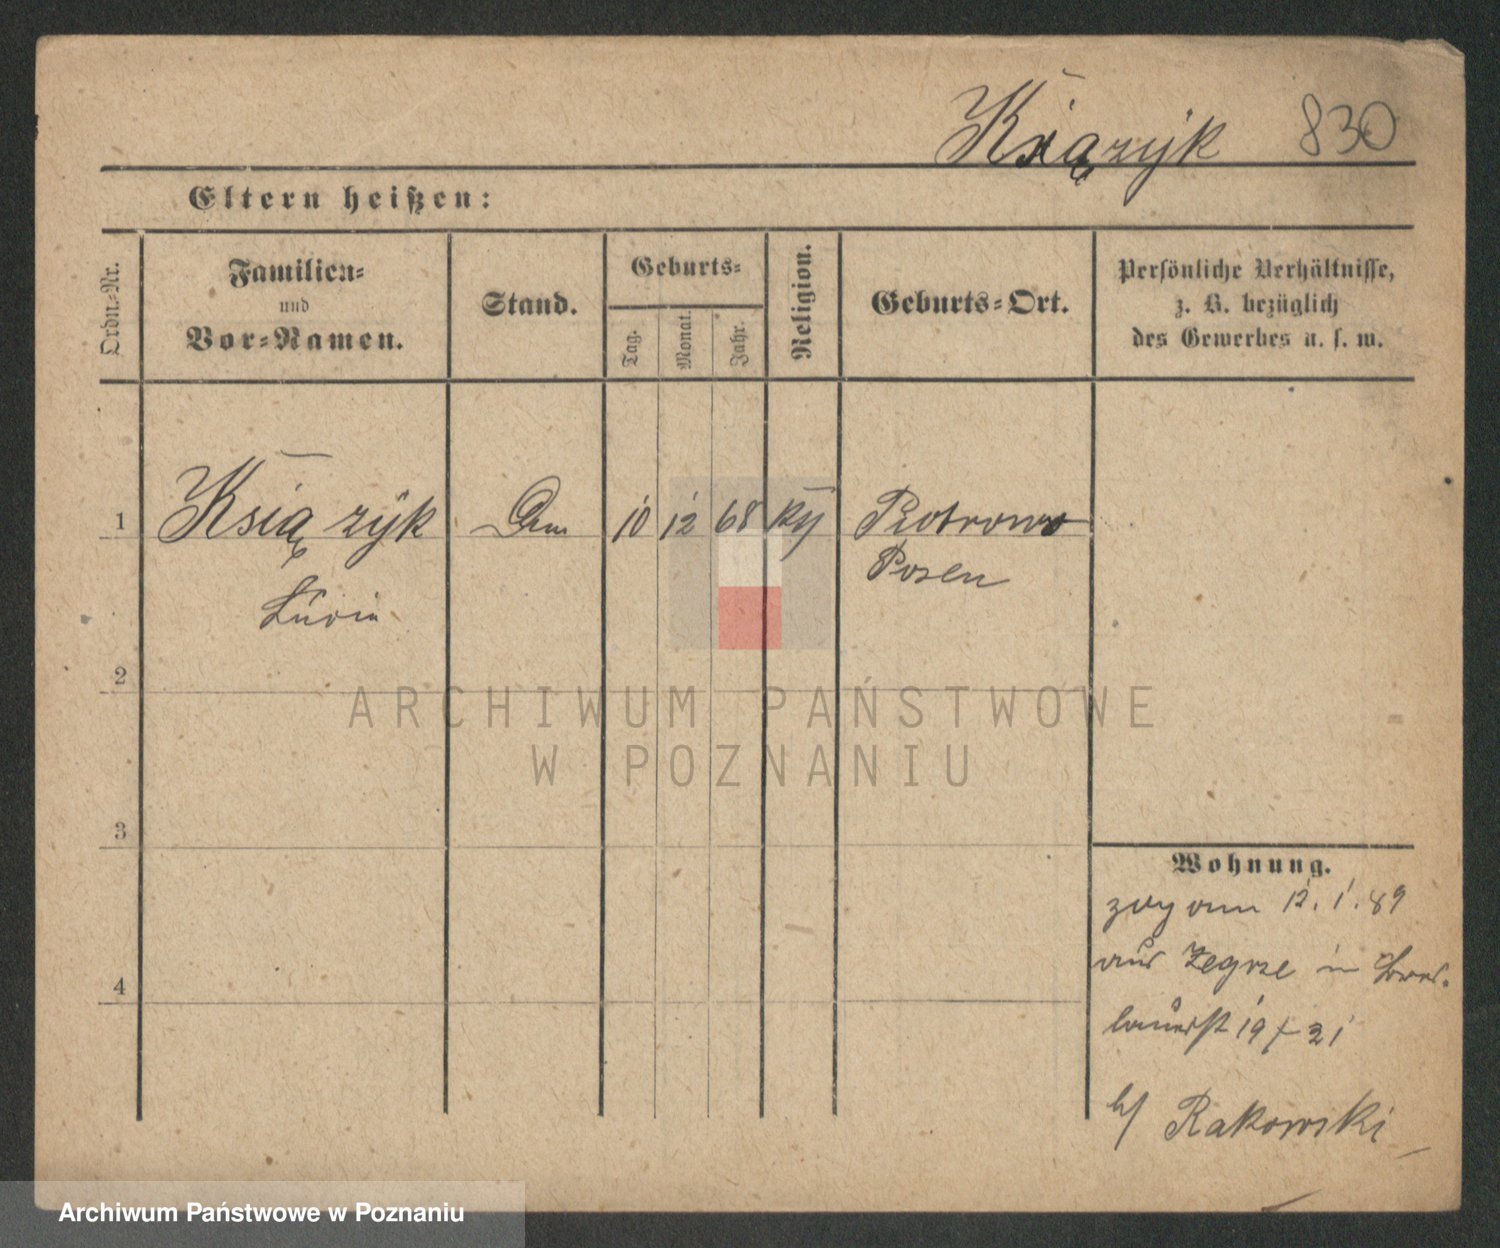 Książyk 830
Eltern heißen:
Ordn.-Nr.
Familien-
und
Vor-Namen.
Stand.
Geburts-
Tag.
Monat.
Jahr.
Religion.
Geburts-Ort.
Persönliche Verhältnisse,
z. B. bezüglich
des Gewerbes u. s. w.
1 Ksią zyk 10 12 68 Piotrowo
Posen
2
ARCHIWUM PAŃSTWOWE
W POZNANIU
3
4
Wohnung.
zog am 12. 1. 89
aus Zegrze in
19/21
b/ Rakowski
Archiwum Państwowe w Poznaniu